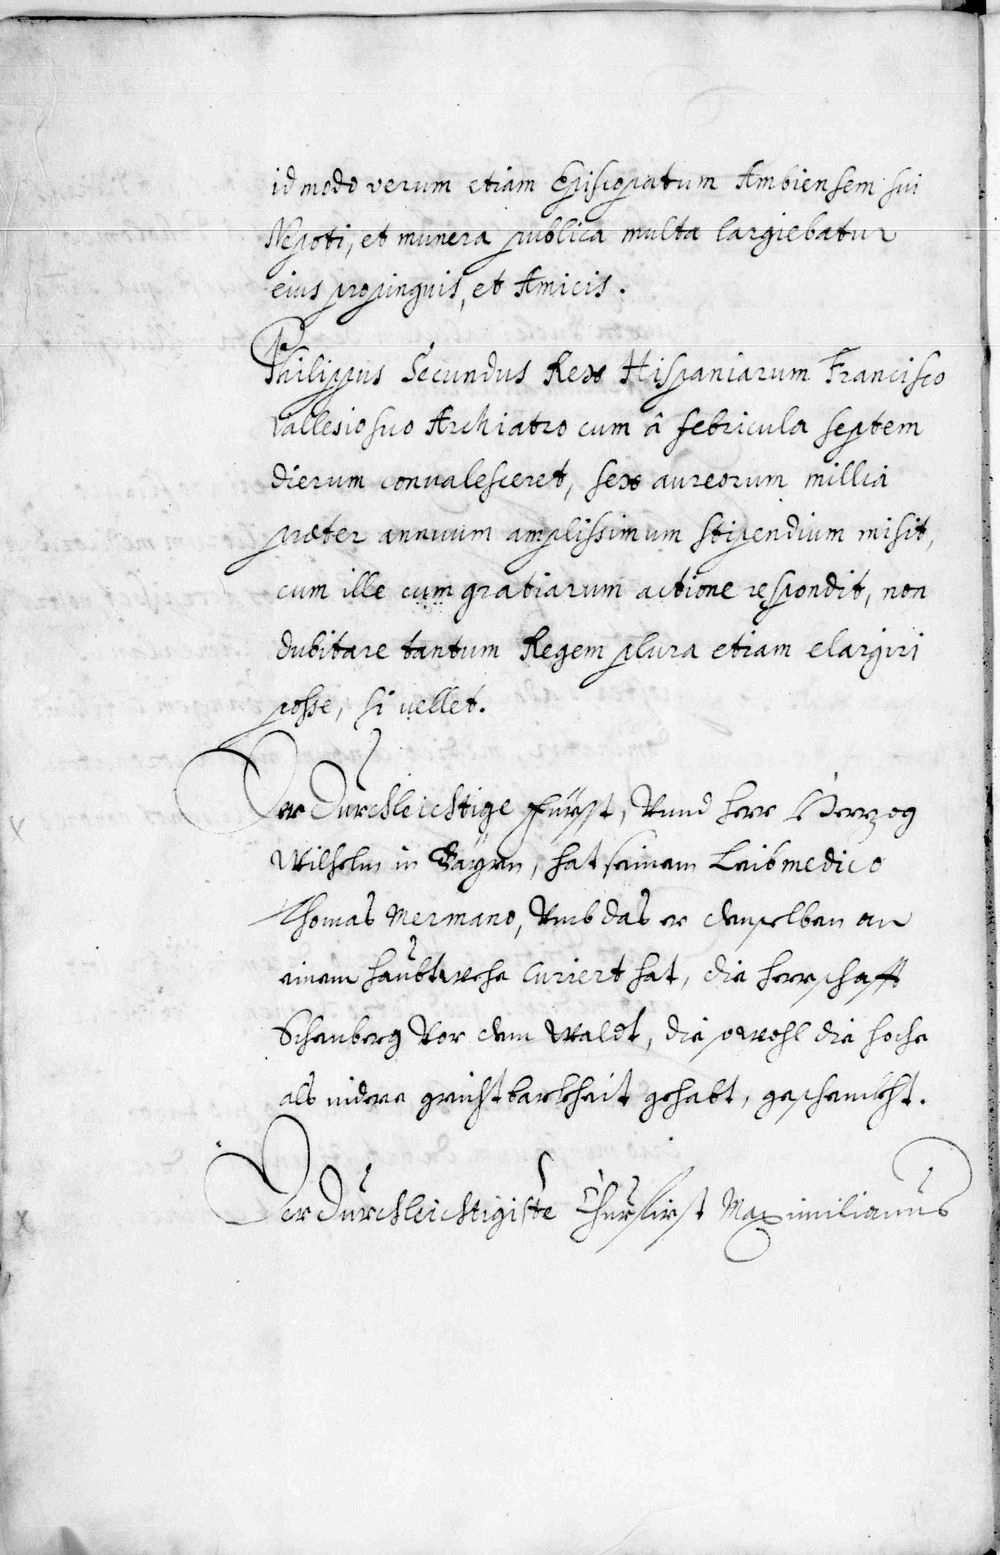 id modo verum etiam Episcopatum Ambiensem sui
Nepoti, et munera publica multa largiebatur
eius propinquis, et Amicis.
Philippus Secundus Rex Hispaniarum Francisco
Vallesio suo Archiatro cum â febricula septem
dierum convalesceret, sex aureorum millia
præter annuum amplissimum stipendium misit,
cum ille cum gratiarum actione respondit, non
dubitare tantum Regem plura etiam elargiri
posse, si vellet.
Der Durchleichtige Fürst, Vnnd Herr Herrzog
Wilhelm in Bayrn, hat seinem Leibmedico
Thomas Mermano, Vmb das er denselben an
einem haubtwehe Curiert hat, die herrschafft
Schenberg Vor dem Waldt, die sowohl die hoche
als nidere grichtbarkheit gehabt, geschenckht.
Der Durchleichtigiste Churfirst Maximilianus